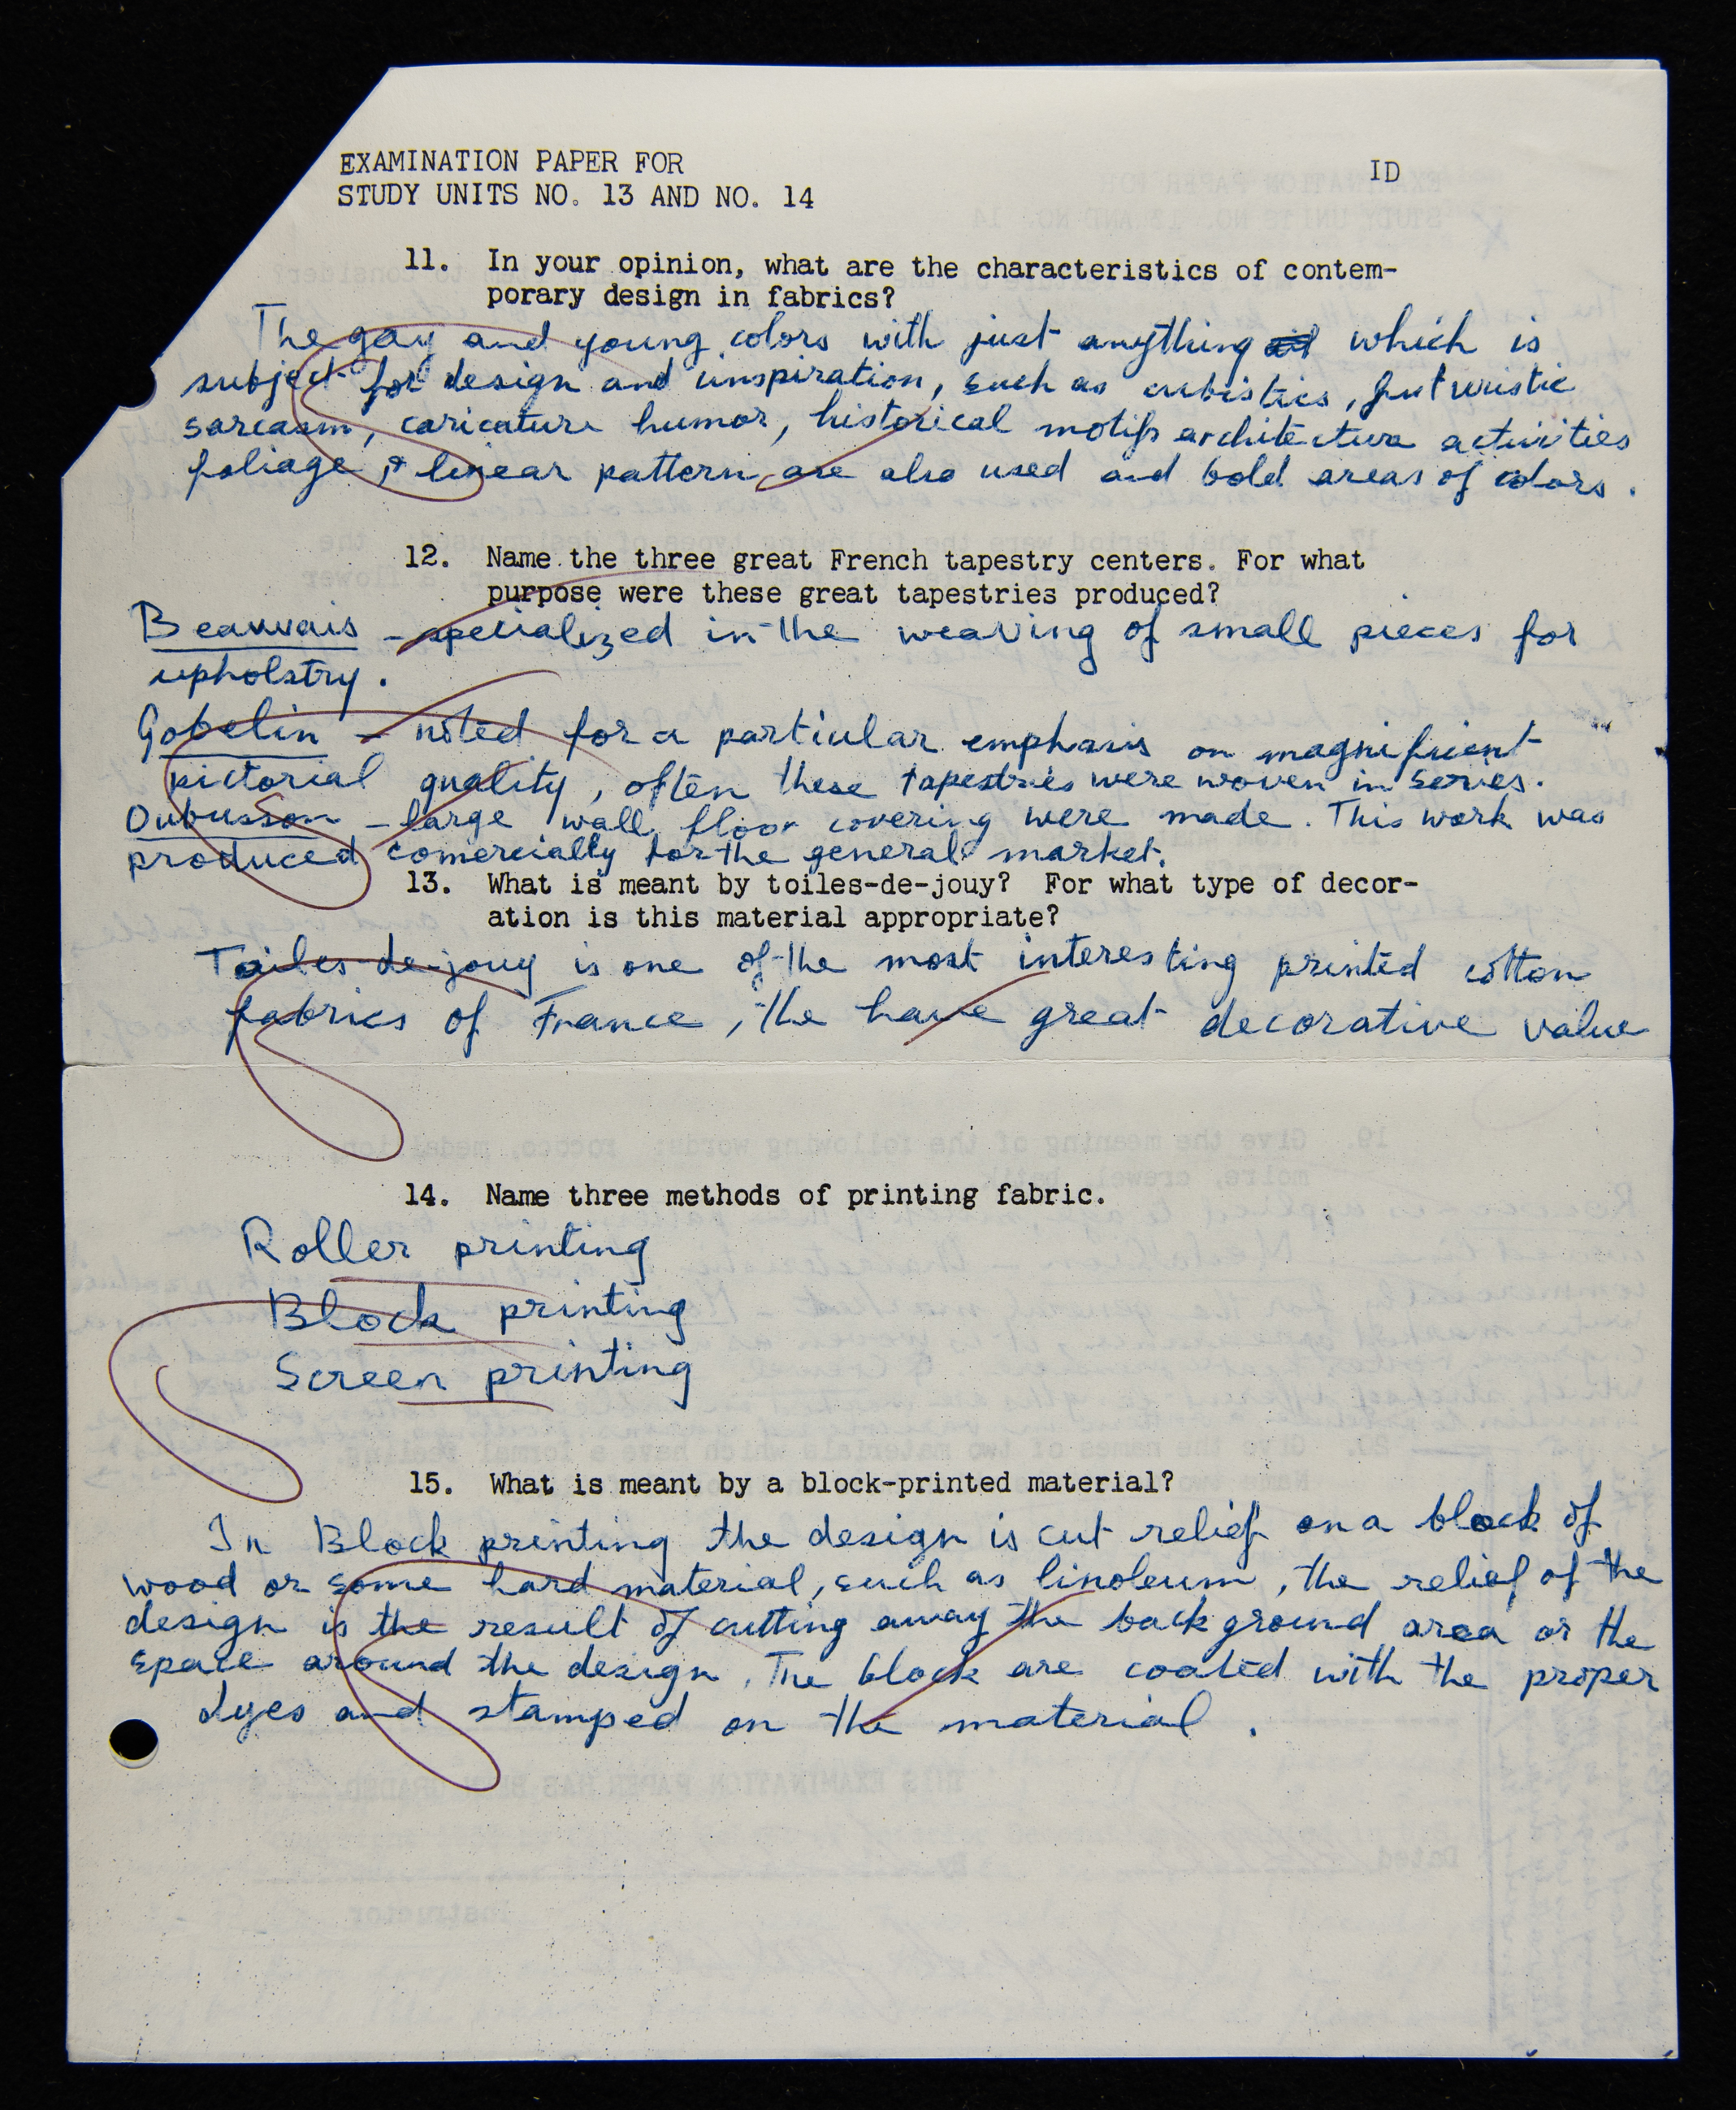 EXAMINATION PAPER FOR
ID
STUDY UNITS NO. 13 AND NO. 14
11. In your opinion, what are the characteristics of contem-
porary design in fabrics?
The gay and young colors with just anything which is
subject for design and unspiration, such as cubistics, futuristic
sarcasm, caricature humor, historical motifs architecture activities
foliage, & linear pattern are also used and bold areas of colors.
12. Name the three great French tapestry centers. For what
purpose were these great tapestries produced?
Beauvais - specialized in the weaving of small pieces for
upholstry.
Gobelin - noted for a particular emphasis on magnificient
pictorial quality, often these tapestries were woven in series.
Oubusson - large wall, floor covering were made. This work was
produced comercially for the general market.
13. What is meant by toiles-de-jouy? For what type of decor-
ation is this material appropriate?
Toiles-de-jouy is one of the most interesting printed cotton
fabrics of France, the have great decorative value
14. Name three methods of printing fabric.
Roller printing
Block printing
Screen printing
15. What is meant by a block-printed material?
In Block printing the design is cut relief on a block of
wood or some hard material, such as linoleum, the relief of the
design is the result of cutting away the back ground area or the
space around the design. The block are coated with the proper
dyes and stamped on the material.